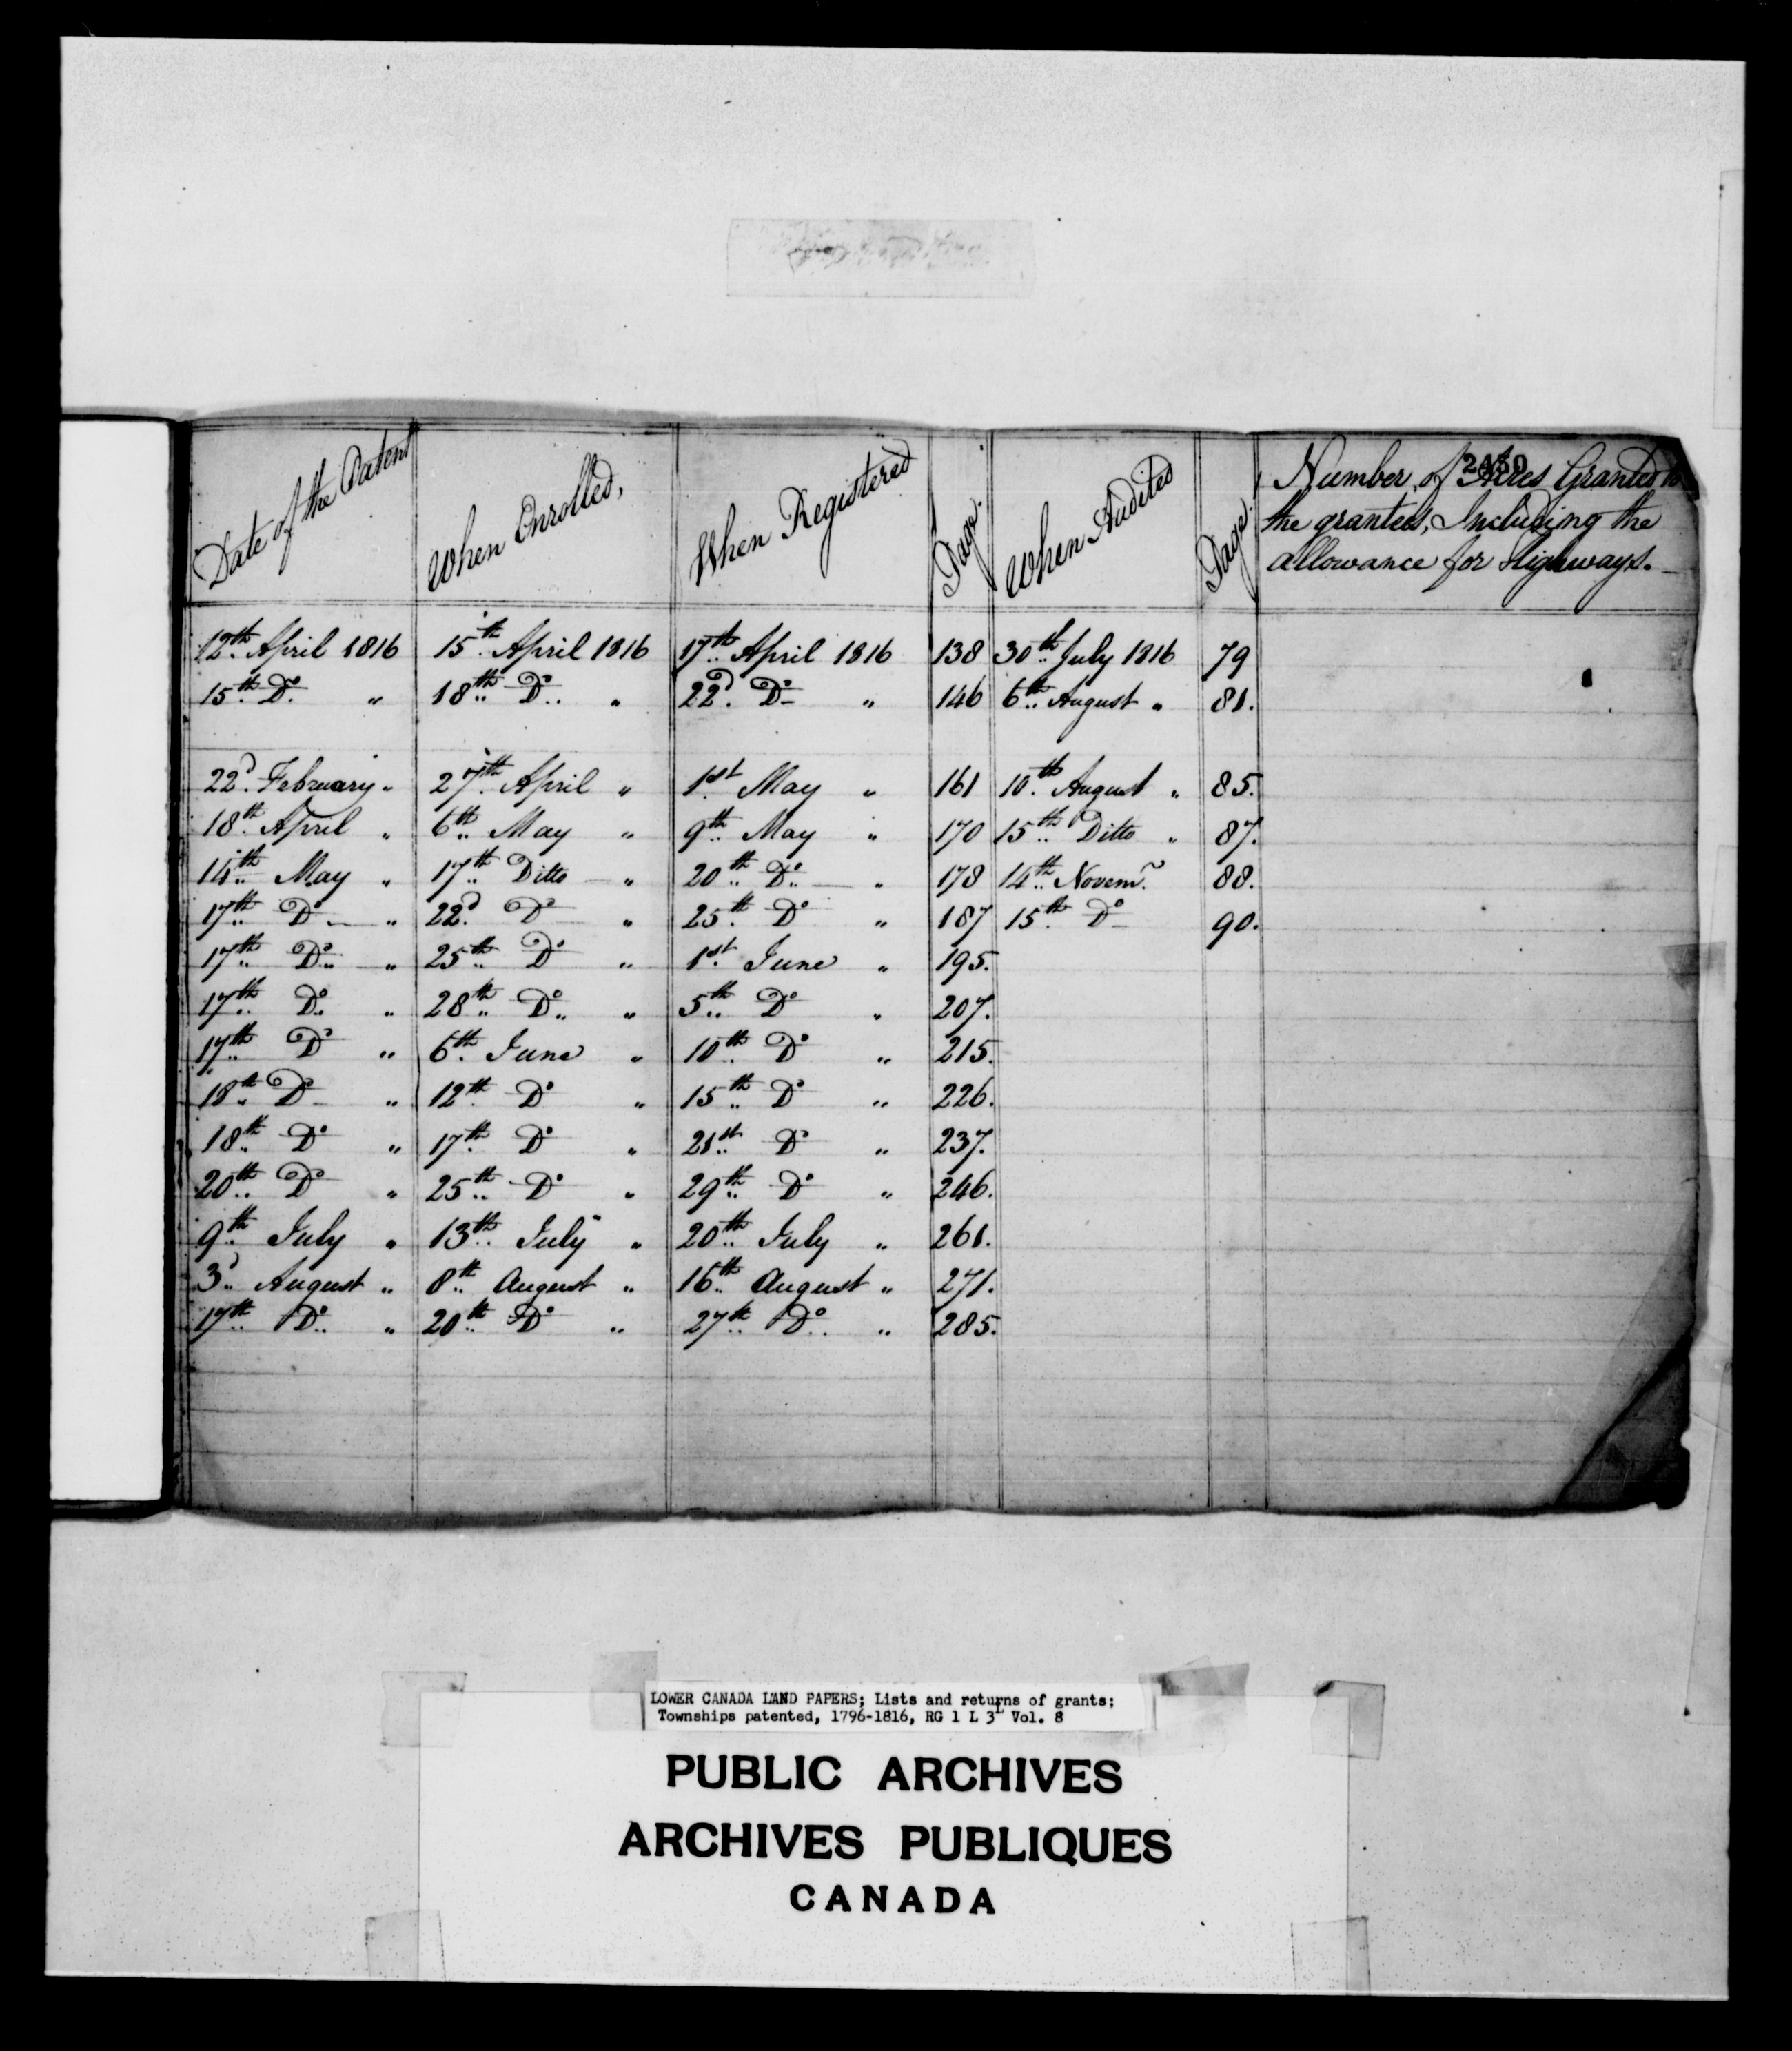 Date of the Patent When Enrolled, When Registered Page. When Audited Page. Number of Acres Granted to
the grantees, Including the
allowance for Highways.
12th April 1816 15th April 1816 17th April 1816 138 30th July 1816 79
15th Do. " 18th Do. " 22d. Do " 146 6th August " 81.
22d. February " 27th April " 1st May " 161 10th August " 85.
18th April " 6th May " 9th May " 170 15th Ditto " 87.
14th May " 17th Ditto " 20th Do " 178 14th Novemr. 88.
17th Do " 22d. Do " 25th Do " 187 15th Do 90.
17th Do " 25th Do " 1st June " 195.
17th Do " 28th Do " 5th Do " 207.
17th Do " 6th June " 10th Do " 215.
18th Do " 12th Do " 15th Do " 226.
18th Do " 17th Do " 21st Do " 237.
20th Do " 25th Do " 29th Do " 246.
9th July " 13th July " 20th July " 261.
3d August " 8th August " 16th August " 271.
17th Do " 20th Do " 27th Do " 285.
LOWER CANADA LAND PAPERS; Lists and returns of grants;
Townships patented, 1796-1816, RG 1 L 3L Vol. 8
PUBLIC ARCHIVES
ARCHIVES PUBLIQUES
CANADA